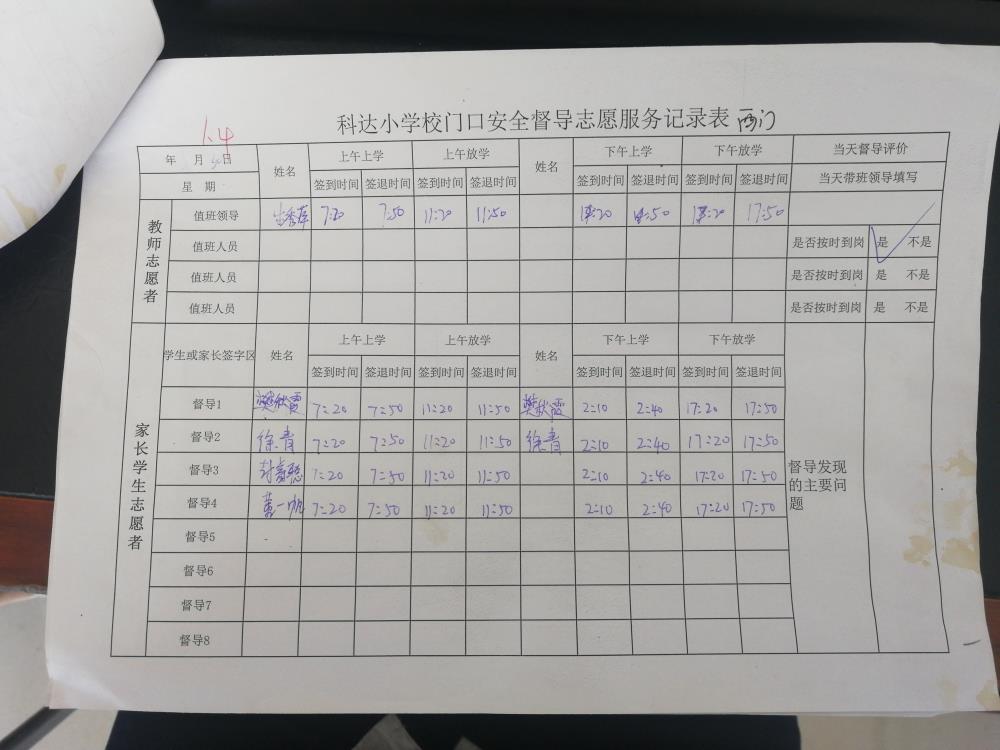 科达小学校门口安全督导志愿服务记录表 西门
1.4
年 月 日 姓名 上午上学 上午放学 姓名 下午上学 下午放学 当天督导评价
星 期 签到时间 签退时间 签到时间 签退时间 签到时间 签退时间 签到时间 签退时间 当天带班领导填写
教师志愿者
值班领导 7:20 7:50 11:20 11:50 :20 :50 :20 17:50
值班人员 是否按时到岗 是 不是
值班人员 是否按时到岗 是 不是
值班人员 是否按时到岗 是 不是
家长学生志愿者
学生或家长签字区 姓名 上午上学 上午放学 姓名 下午上学 下午放学
签到时间 签退时间 签到时间 签退时间 签到时间 签退时间 签到时间 签退时间
督导1 樊秋霞 7:20 7:50 11:20 11:50 樊秋霞 2:10 2:40 17:20 17:50
督导2 徐青 7:20 7:50 11:20 11:50 徐青 2:10 2:40 17:20 17:50
督导3 7:20 7:50 11:20 11:50 2:10 2:40 17:20 17:50
督导4 7:20 7:50 11:20 11:50 2:10 2:40 17:20 17:50
督导5
督导6
督导7
督导8
督导发现
的主要问
题